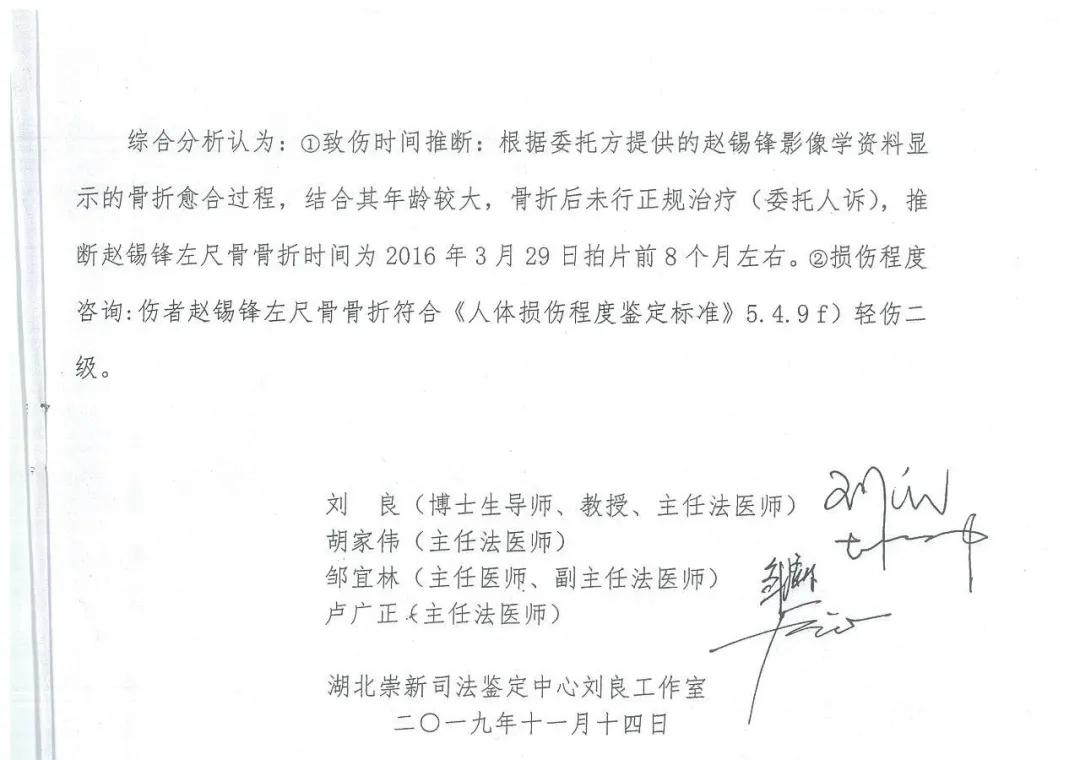 综合分析认为：①致伤时间推断：根据委托方提供的赵锡锋影像学资料显
示的骨折愈合过程，结合其年龄较大，骨折后未行正规治疗（委托人诉），推
断赵锡锋左尺骨骨折时间为2016年3月29日拍片前8个月左右。②损伤程度
咨询：伤者赵锡锋左尺骨骨折符合《人体损伤程度鉴定标准》5.4.9 f）轻伤二
级。
刘 良（博士生导师、教授、主任法医师）
胡家伟（主任法医师）
邹宜林（主任医师、副主任法医师）
卢广正（主任法医师）
湖北崇新司法鉴定中心刘良工作室
二〇一九年十一月十四日